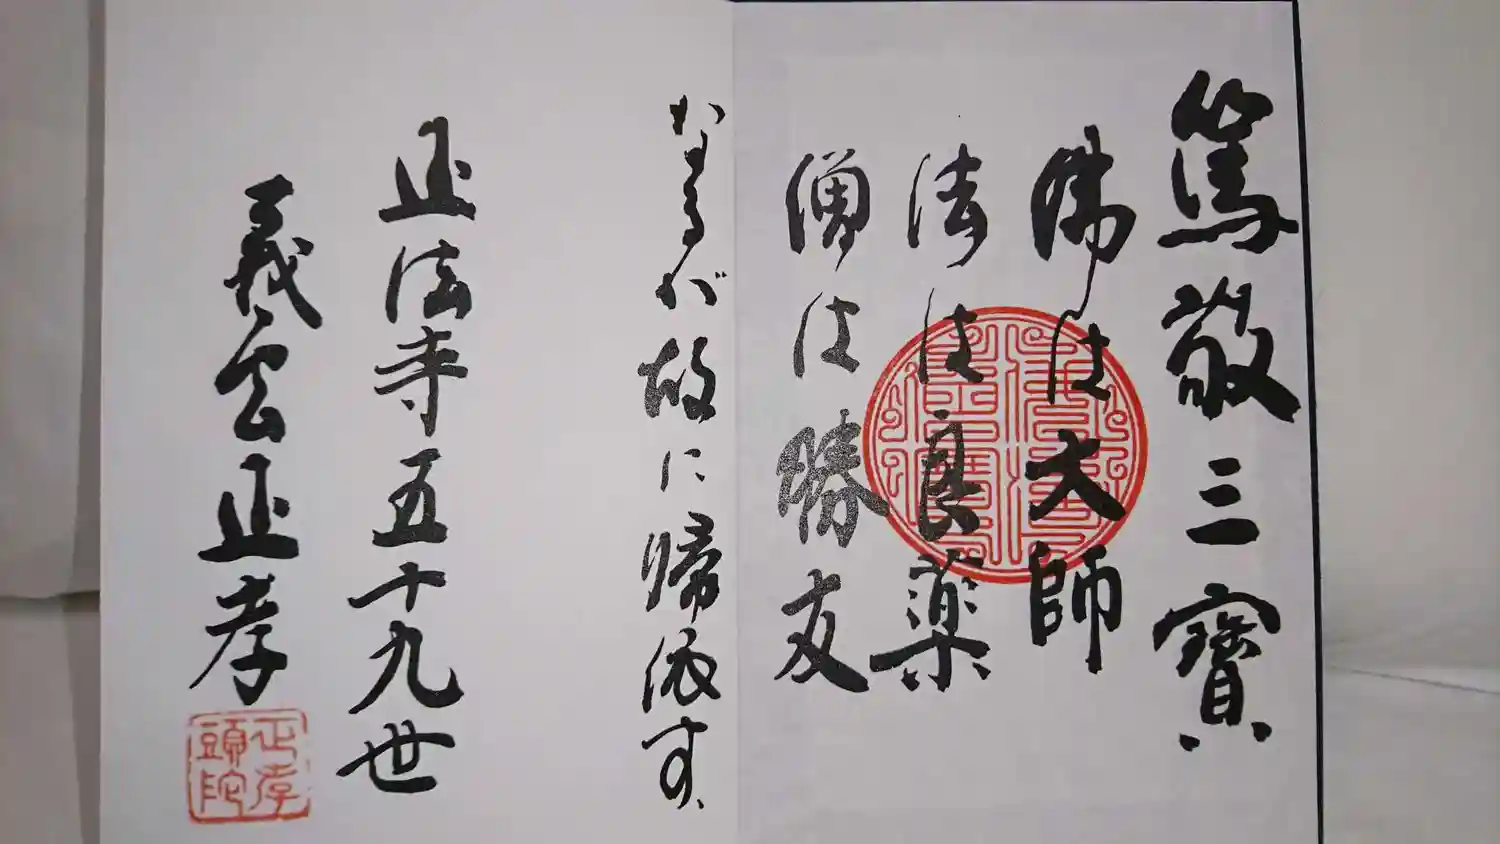 篤敬三寳
佛は大師
法は良薬
僧は勝友
なるが故に帰依す
正法寺五十九世
義雲正孝
正孝
頭陀